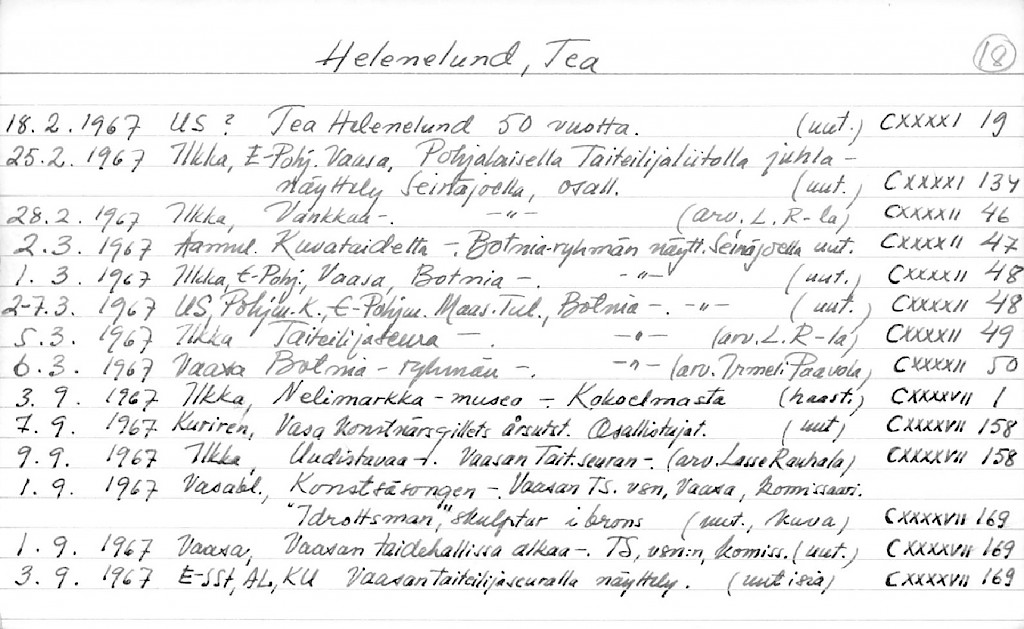 Helenelund, Tea 18
18.2.1967 US ? Tea Helenelund 50 vuotta. (uut.) CXXXXI 19
25.2.1967 Ilkka, E-Pohj. Vaasa, Pohjalaisella Taiteilijaliitolla juhla-
näyttely Seinäjoella, osall. (uut.) CXXXXI 134
28.2.1967 Ilkka, Vankkaa-. -"- (arv. L. R-la) CXXXXII 46
2.3.1967 Aamul. Kuvataidetta -. Botnia-ryhmän näytt. Seinäjoella uut. CXXXXII 47
1.3.1967 Ilkka, E-Pohj, Vaasa, Botnia -. -"- (uut.) CXXXXII 48
2-7.3.1967 US, Pohjan.K., E-Pohjan. Maas. Tul., Botnia -. -"- (uut.) CXXXXII 48
5.3.1967 Ilkka Taiteilijaseura -. -"- (arv. L. R-la) CXXXXII 49
6.3.1967 Vaasa Botnia-ryhmän -. -"- (arv. Irmeli Paavola) CXXXXII 50
3.9.1967 Ilkka, Nelimarkka-museo -. Kokoelmasta (haast.) CXXXXVII 1
7.9.1967 Kuriren, Vasa konstnärsgillets årsutst. Osallistujat. (uut) CXXXXVII 158
9.9.1967 Ilkka, Uudistavaa -. Vaasan Tait.seuran-. (arv. Lasse Rauhala) CXXXXVII 158
1.9.1967 Vasabl., Konstsäsongen -. Vaasan TS. vsn, Vaasa, komissaari.
"Idrottsman," skulptur i brons (uut., kuva) CXXXXVII 169
1.9.1967 Vaasa, Vaasan taidehallissa alkaa-. TS, vsn:n, komiss. (uut.) CXXXXVII 169
3.9.1967 E-SSt, AL, KU Vaasan Taiteilijaseuralla näyttely. (uutisia) CXXXXVII 169